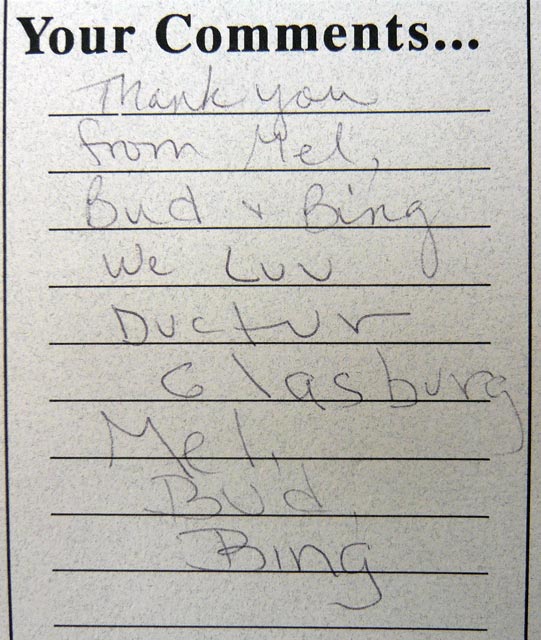 Your Comments...
Thank you
from Mel,
Bud + Bing
We Luv
Ductur
Glasburg
Mel,
Bud,
Bing